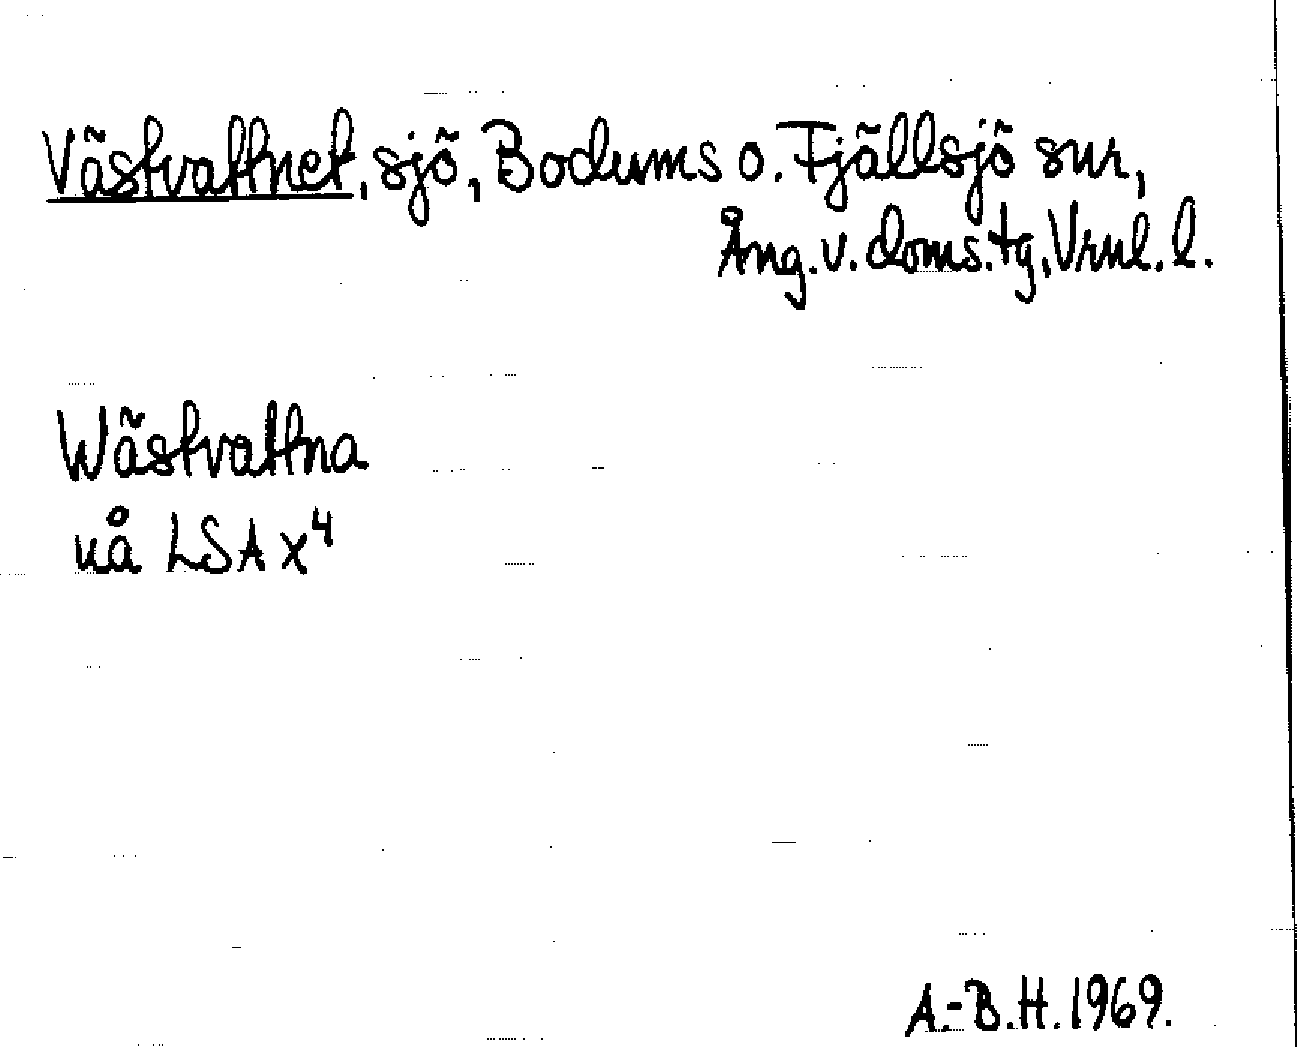 Västvattnet, sjö, Bodums o. Fjällsjö snr,
Ång. v. doms. tg, Vrnl. l.
Wästvattna
uå LSA X⁴
A.-B.H. 1969.